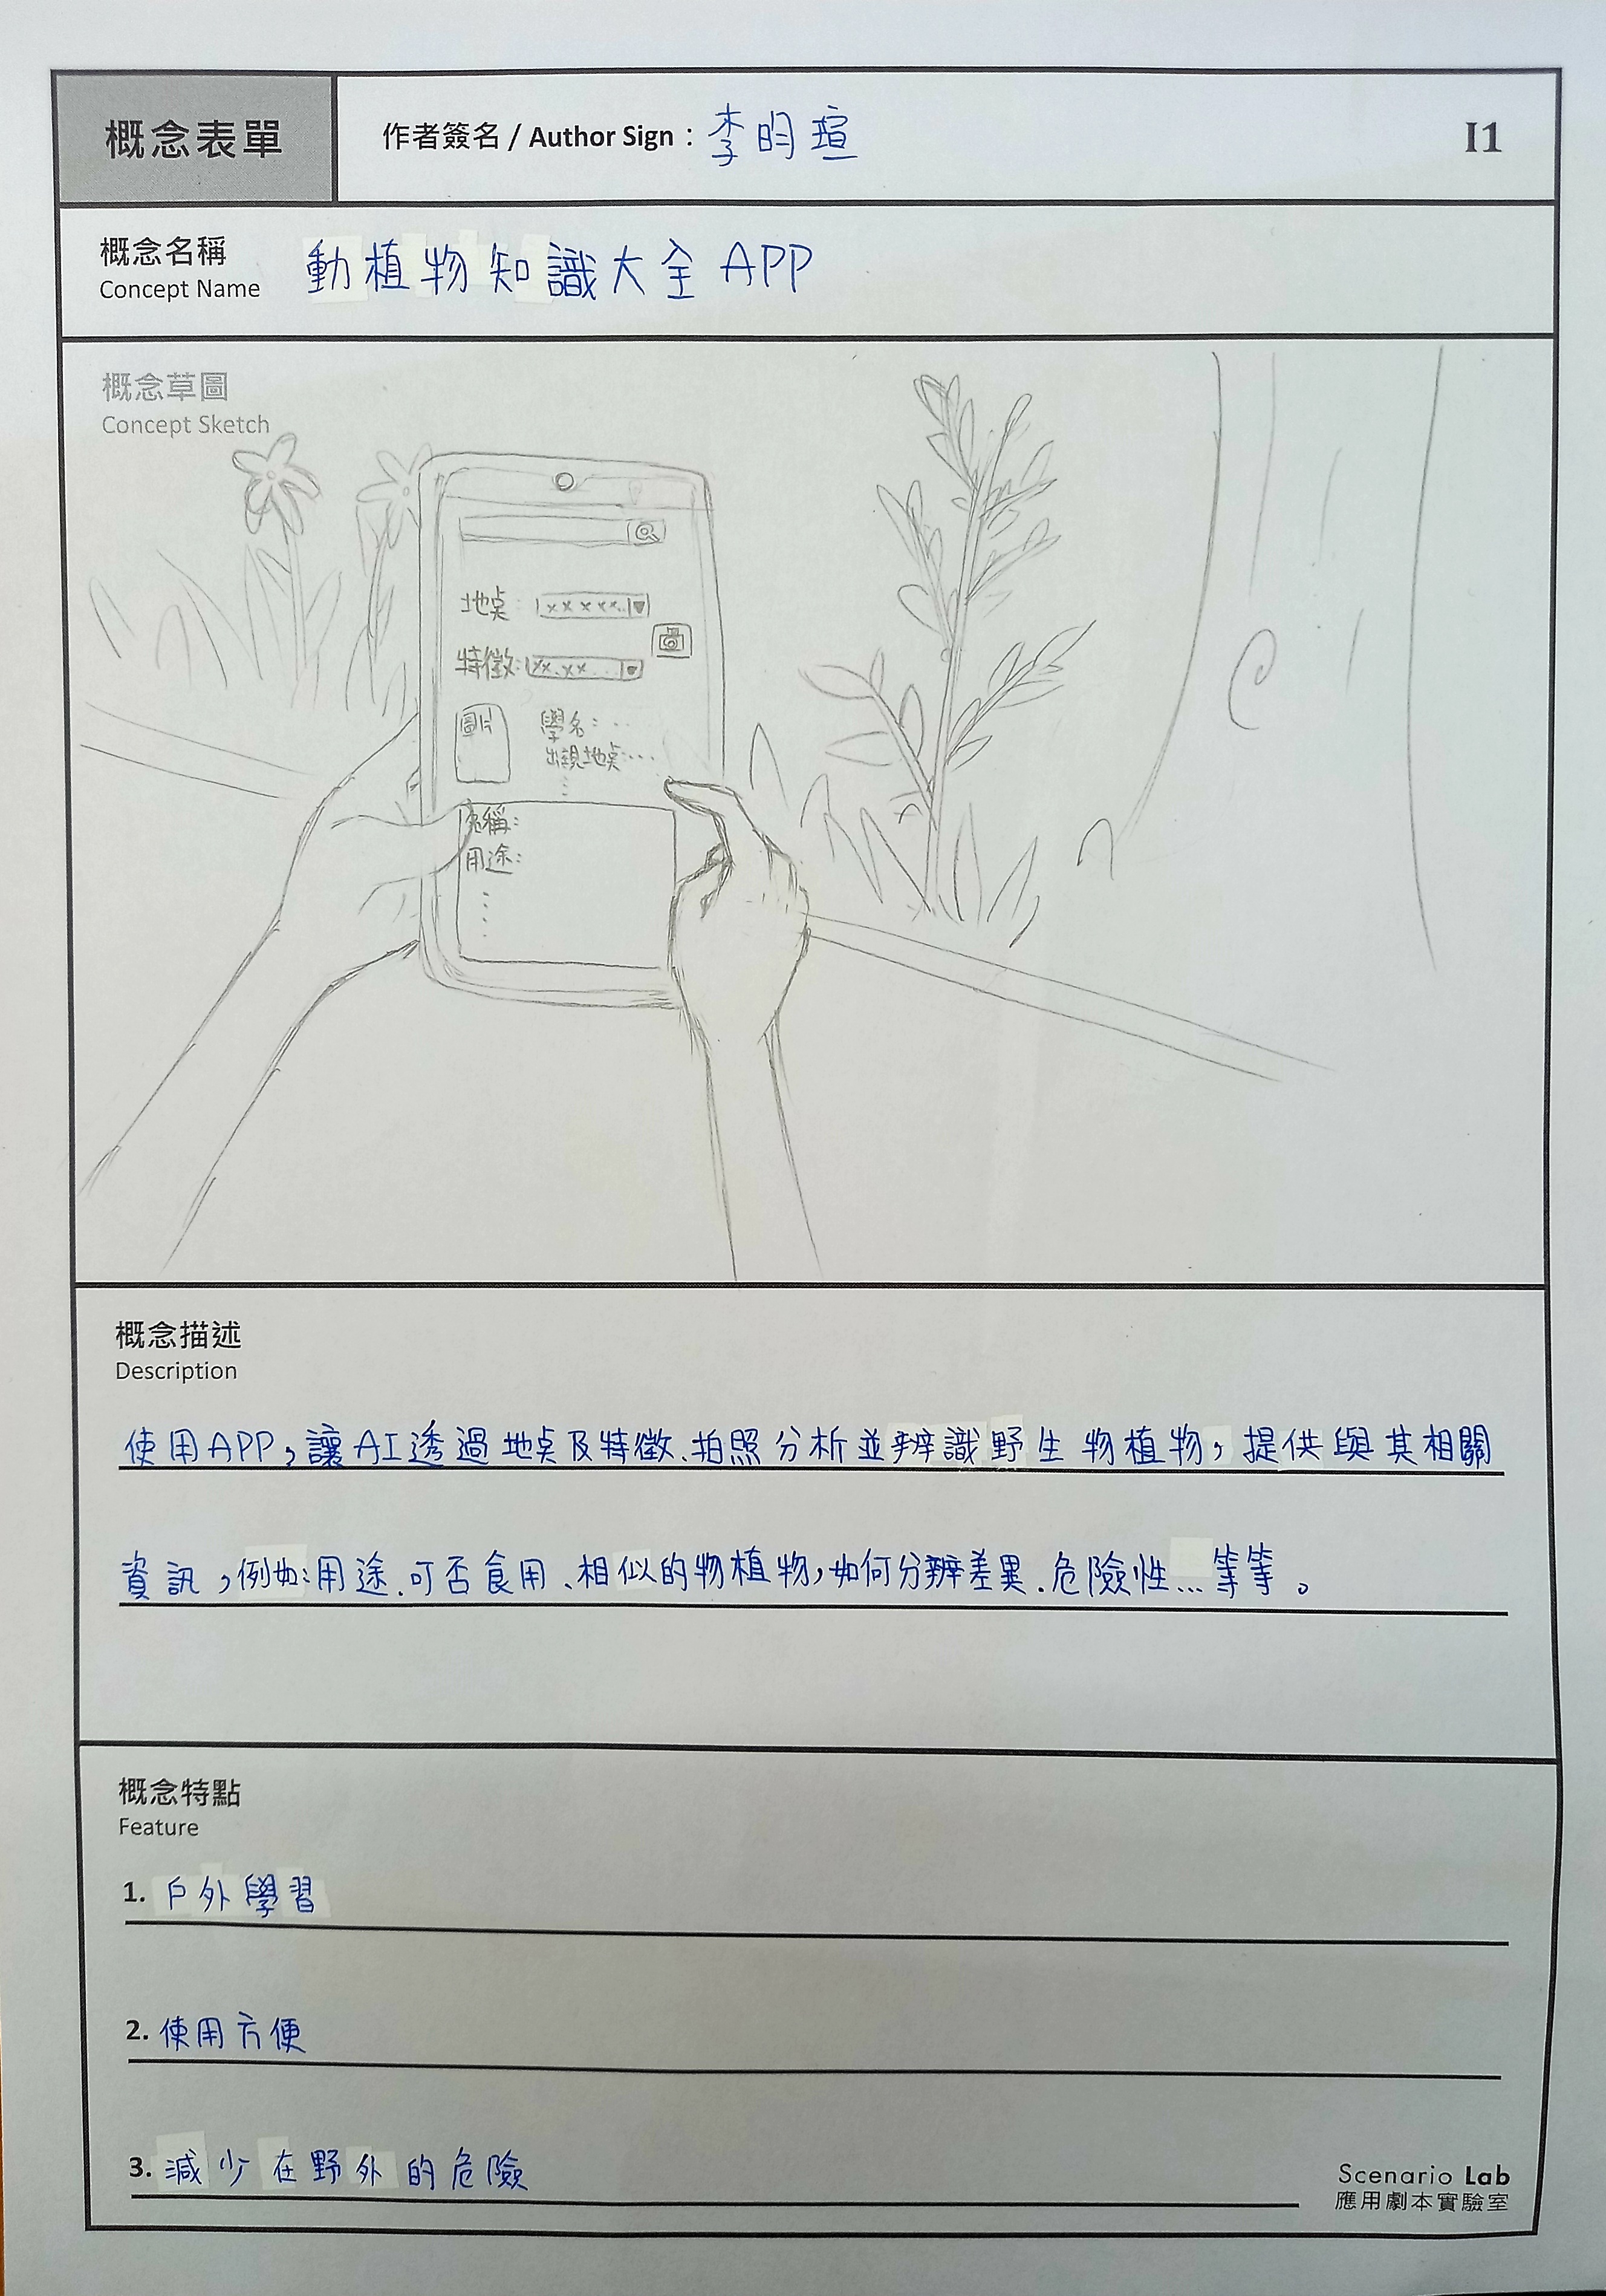 概念表單
作者簽名 / Author Sign：李昀瑄
I1
概念名稱
動植物知識大全 APP
Concept Name
概念草圖
Concept Sketch
地桌：xxxxx..
特徵：xx.xx...
圖片
學名：...
出現地桌...
名稱：
用途：
概念描述
Description
使用APP，讓AI透過地桌及特徵、拍照分析並辨識野生物植物，提供與其相關
資訊，例如：用途、可否食用、相似的物植物，如何分辨差異、危險性...等等。
概念特點
Feature
1. 戶外學習
2. 使用方便
3. 減少在野外的危險
Scenario Lab
應用劇本實驗室